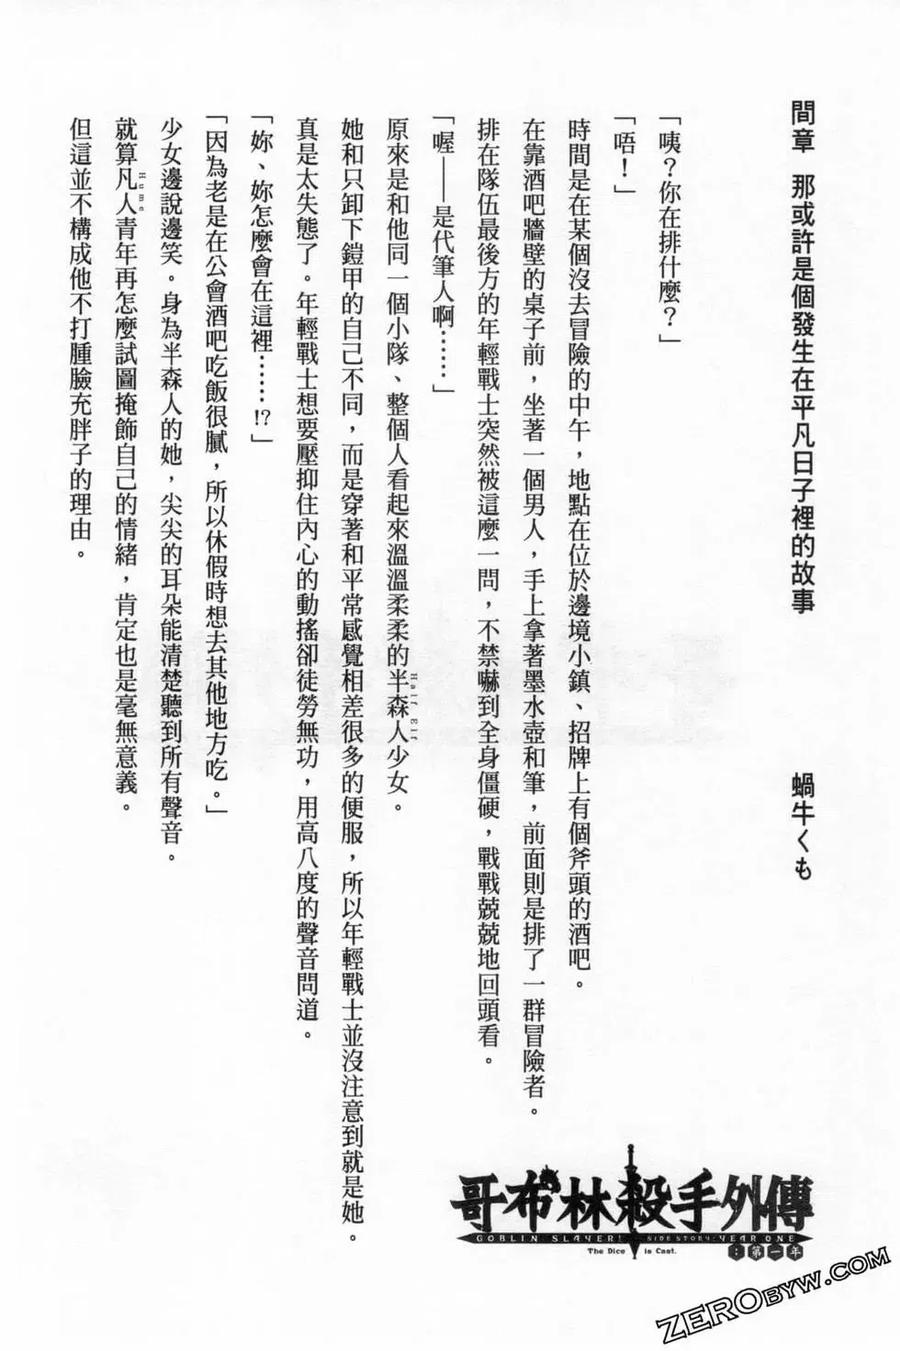 間章　那或許是個發生在平凡日子裡的故事　　蝸牛くも
「咦？你在排什麼？」
「唔！」
時間是在某個沒去冒險的中午，地點在位於邊境小鎮、招牌上有個斧頭的酒吧。
在靠酒吧牆壁的桌子前，坐著一個男人，手上拿著墨水壺和筆，前面則是排了一群冒險者。
排在隊伍最後方的年輕戰士突然被這麼一問，不禁嚇到全身僵硬，戰戰兢兢地回頭看。
「喔——是代筆人啊……」
原來是和他同一個小隊、整個人看起來溫溫柔柔的半森人少女。
Half Elf
她和只卸下鎧甲的自己不同，而是穿著和平常感覺相差很多的便服，所以年輕戰士並沒注意到就是她。
真是太失態了。年輕戰士想要壓抑住內心的動搖卻徒勞無功，用高八度的聲音問道。
「妳、妳怎麼會在這裡……!?」
「因為老是在公會酒吧吃飯很膩，所以休假時想去其他地方吃。」
少女邊說邊笑。身為半森人的她，尖尖的耳朵能清楚聽到所有聲音。
就算凡人青年再怎麼試圖掩飾自己的情緒，肯定也是毫無意義。
Hume
但這並不構成他不打腫臉充胖子的理由。
哥布林殺手外傳
GOBLIN SLAYER! SIDE STORY: YEAR ONE
：第一年
The Dice is Cast.
ZEROBYW.COM